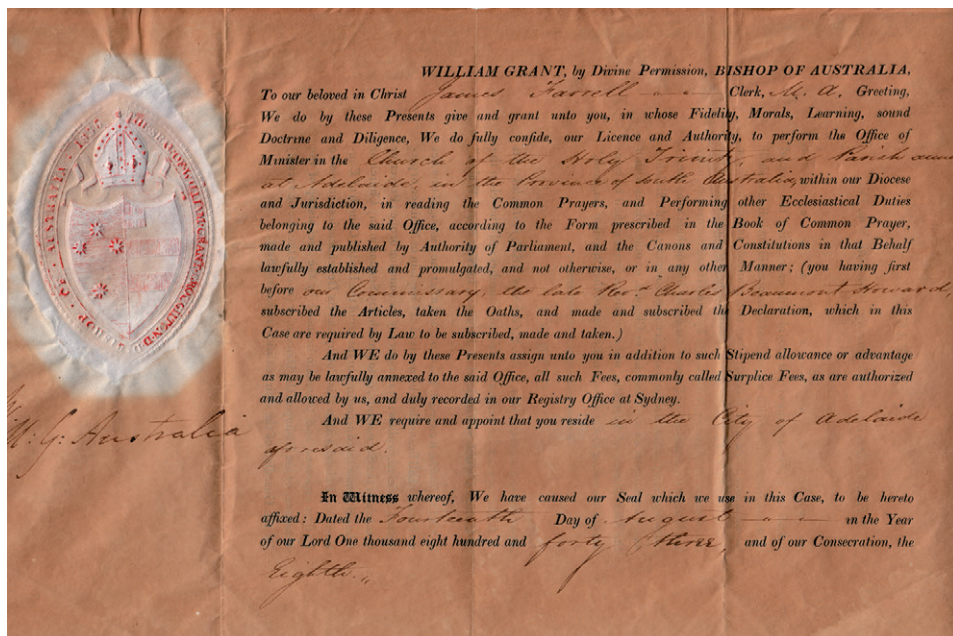 WILLIAM GRANT, by Divine Permission, BISHOP OF AUSTRALIA,
To our beloved in Christ James Farrell Clerk, M. A. Greeting,
We do by these Presents give and grant unto you, in whose Fidelity, Morals, Learning, sound
Doctrine and Diligence, We do fully confide, our Licence and Authority, to perform the Office of
Minister in the Church of the Holy Trinity, and Parish
at Adelaide, in the Province of South Australia, within our Diocese
and Jurisdiction, in reading the Common Prayers, and Performing other Ecclesiastical Duties
belonging to the said Office, according to the Form prescribed in the Book of Common Prayer,
made and published by Authority of Parliament, and the Canons and Constitutions in that Behalf
lawfully established and promulgated, and not otherwise, or in any other Manner; (you having first
before our Commissary, the late Revd. Charles Beaumont Howard,
subscribed the Articles, taken the Oaths, and made and subscribed the Declaration, which in this
Case are required by Law to be subscribed, made and taken.)
And WE do by these Presents assign unto you in addition to such Stipend allowance or advantage
as may be lawfully annexed to the said Office, all such Fees, commonly called Surplice Fees, as are authorized
and allowed by us, and duly recorded in our Registry Office at Sydney.
And WE require and appoint that you reside in the City of Adelaide
aforesaid.
In Witness whereof, We have caused our Seal which we use in this Case, to be hereto
affixed: Dated the Fourteenth Day of August in the Year
of our Lord One thousand eight hundred and forty three, and of our Consecration, the
Eighth.
G: Australia